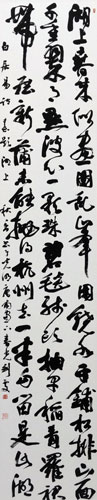 湖上春來似畫圖亂峯圍繞水平鋪松排山面
千重翠月點波心一顆珠碧毯綫頭抽早稻青羅裙
帶展新蒲未能抛得杭州去一半勾留是此湖
白居易詩春題湖上